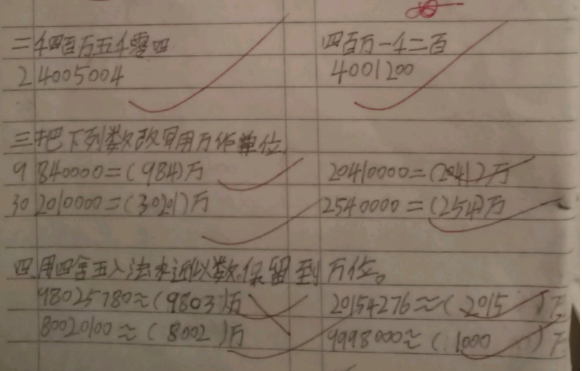 二千四百万五千零四 四百万一千二百
24005004 4001200
三把下列数改写用万作单位
9840000=(984)万 20410000=(2041)万
302010000=(30201)万 2540000=(254)万
四.用四舍五入法求近似数,保留到万位。
98025780≈(9803)万 20154276≈(2015)万
80020100≈(8002)万 9998000≈(1000)万